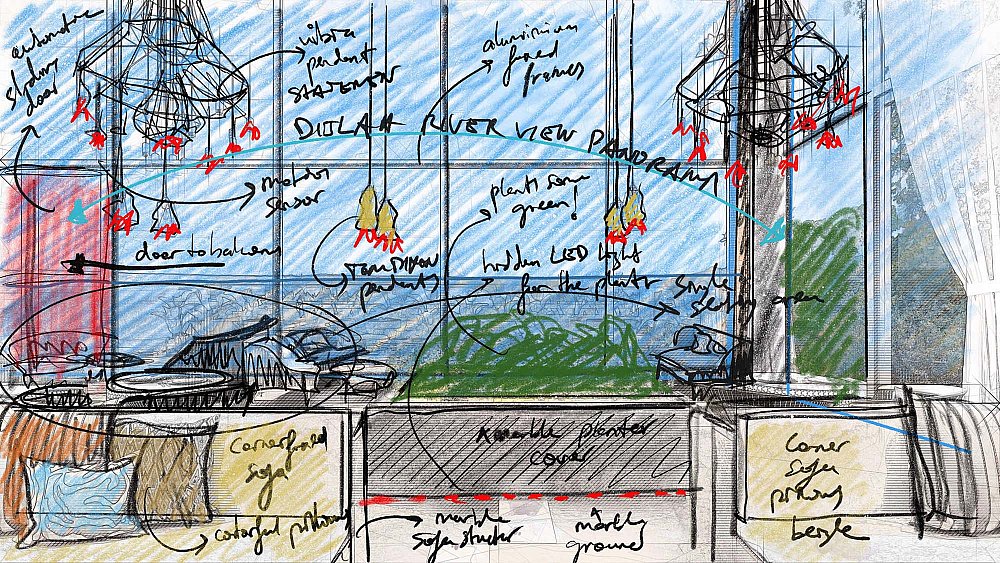 automatic
sliding
door
vibia
pendant
STATEMENT
aluminium
fixed
frames
DIJLAH RIVER VIEW PANORAMA
motion
sensor
plants some
green!
door to balcony
TOM DIXON
pendants
hidden LED light
for the plants
single
seating area
corner fixed
sofa
marble planter
cover
corner
sofa
pillows
beige
colorful pillows
marble
sofa
marble
ground